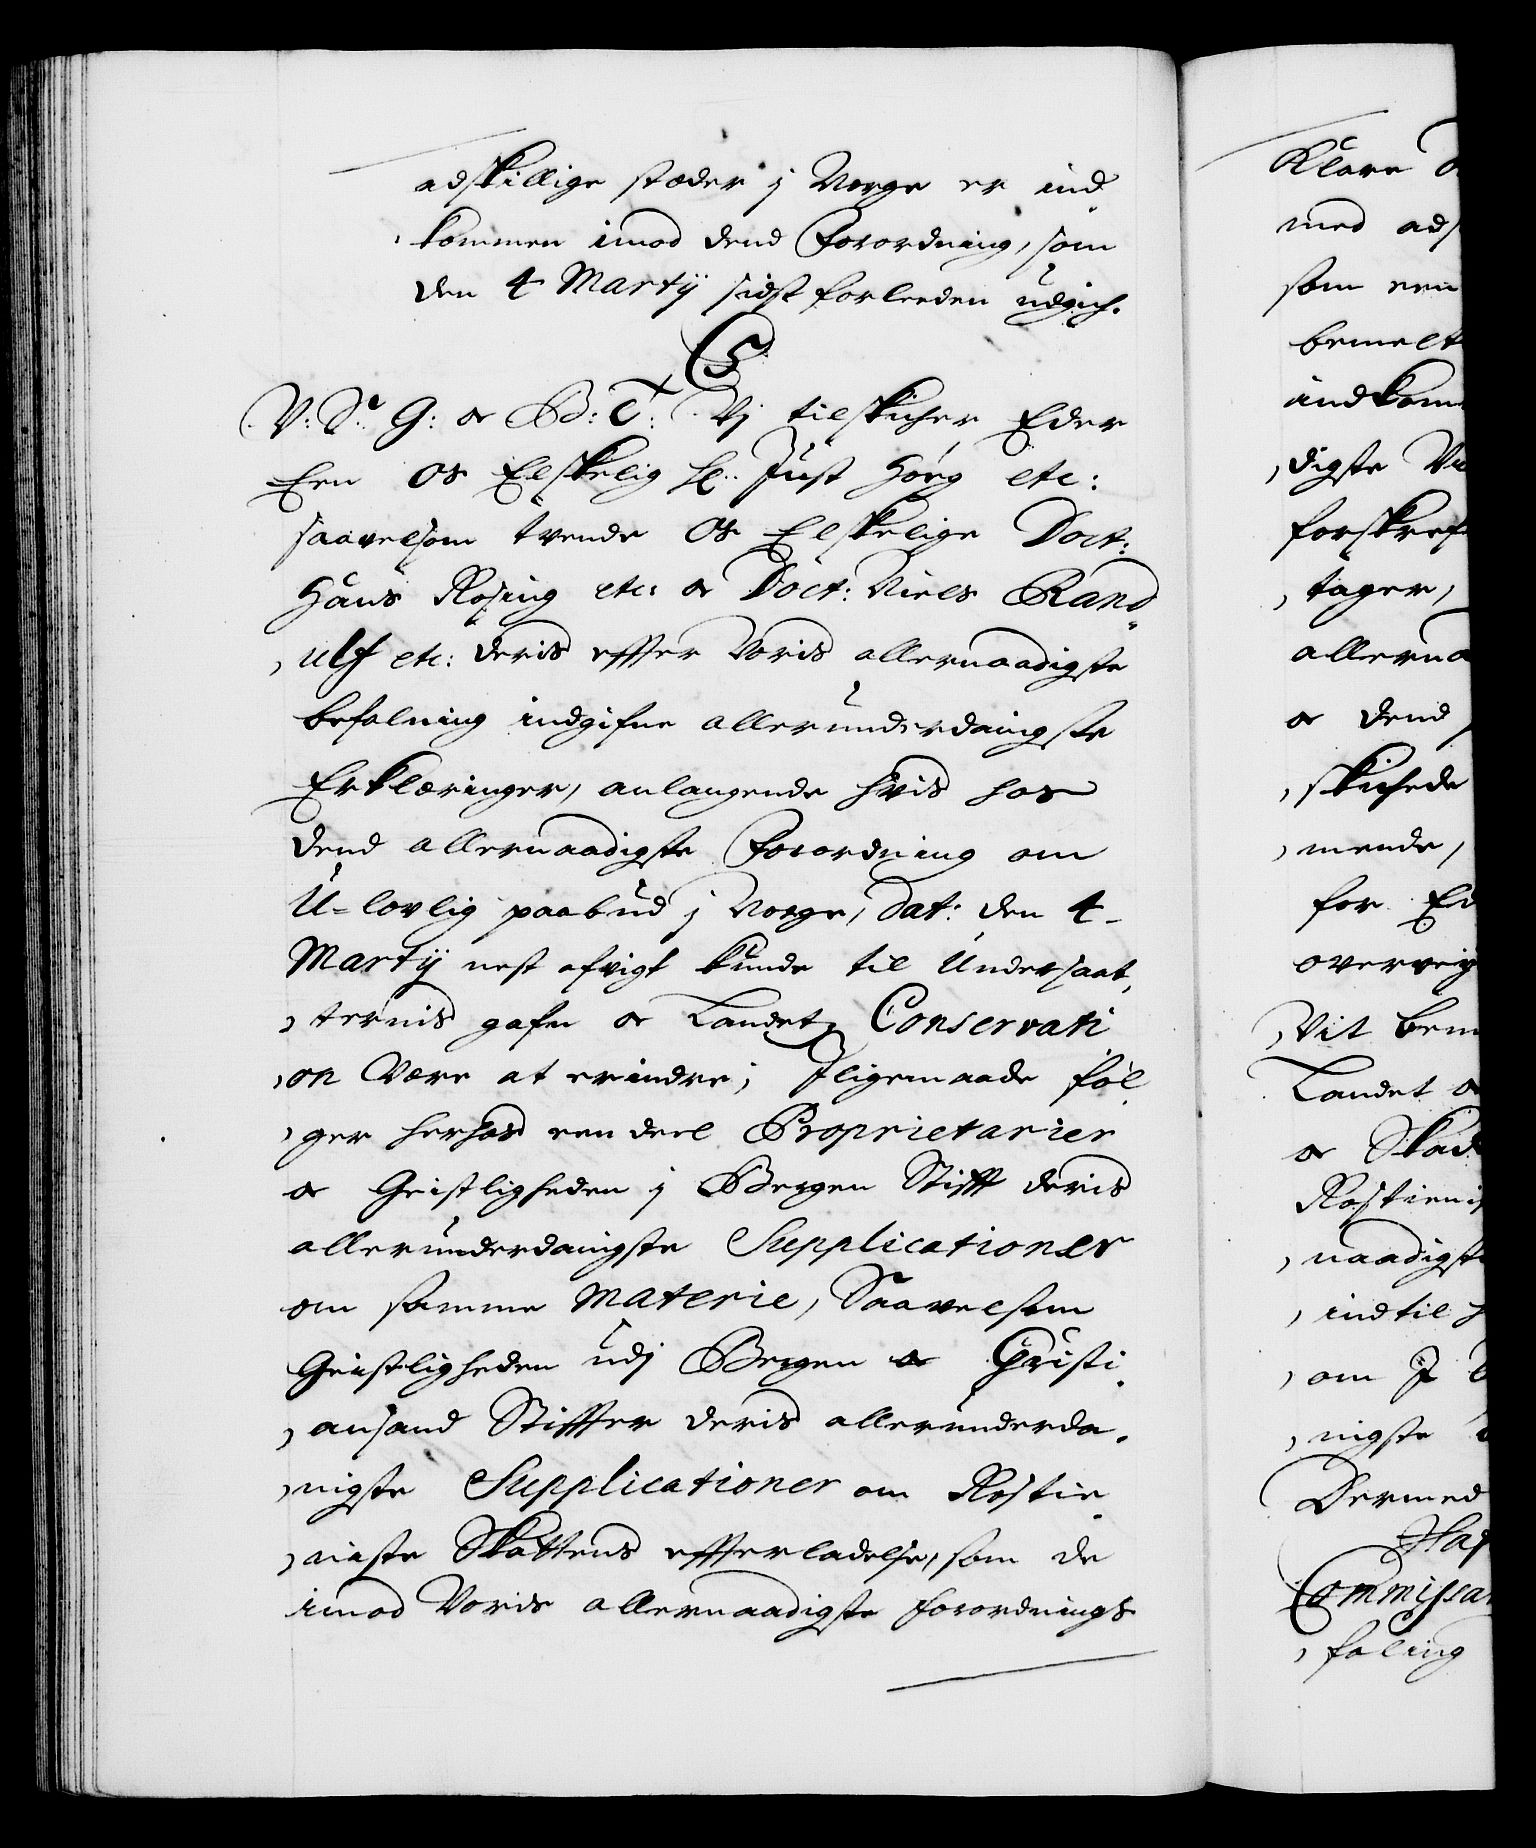 adskillige stæder j Norge er ind-
kommen imod dend Forordning, som
den 4 Martij sidst forleeden udgich.
C5
V: S: G: oc B: T: Vj tilskicher Eder
hen os Elskelig H: Just Høeg etc:
saavelsom tvende os Elskelige Doct:
Hans Rosing etc: oc Doct: Niels Rand-
ulf etc: deris effter Voris allernaadigste
befalning indgifne allerunderdanigste
Erklæringer, anlangende hvis hos
dend allernaadigste Forordning om
U-lovlig paabud j Norge, dat: den 4-
Martij nest afvigt kunde til Undersaat-
ternis gafn oc Landetz Conservati
on Være at erindre; Iligemaade føl
ger herhos een deel Proprietarier
oc Geistligheden j Bergen Stifft deris
allerunderdanigste Supplicationer
om samme Materie, Saavelsom
Geistligheden udj Bergen oc Christi-
ansand Stiffter deris allerunderda-
nigste Supplicationer om Rostie-
niste Skattens effterladelse, som de
imod Voris allernaadigste forordnings
Klare
med ads
som een
bemelt
indkom
digste
forskref
tager,
allerna
oc dend
skichede
mende,
for
overvej
Vit bem
Landet oc
oc Skad
Rostienis
naadigst
indtil
om I
nigste
Dermed
Haf
Commissar
faling